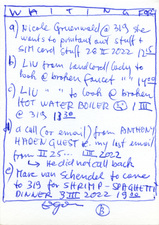 WAITING FOR
a) Nicole Gruenwald @ 319 she
wants to printout stuff +
SIM card stuff 26 II 2022
b) LIU from landlord/lady to
look @ broken faucet
c) LIU " to look @ broken
HOT WATER BOILER 1 III
@ 319, 1330
d) a call (or email) from ANTHONY
HADEN GUEST my last email
from II 25... III 2022
↳ He did not call back
e) Marc van Schendel to come
to 319 for SHRIMP-SPAGHETTI
DINNER 3 III 2022 1930